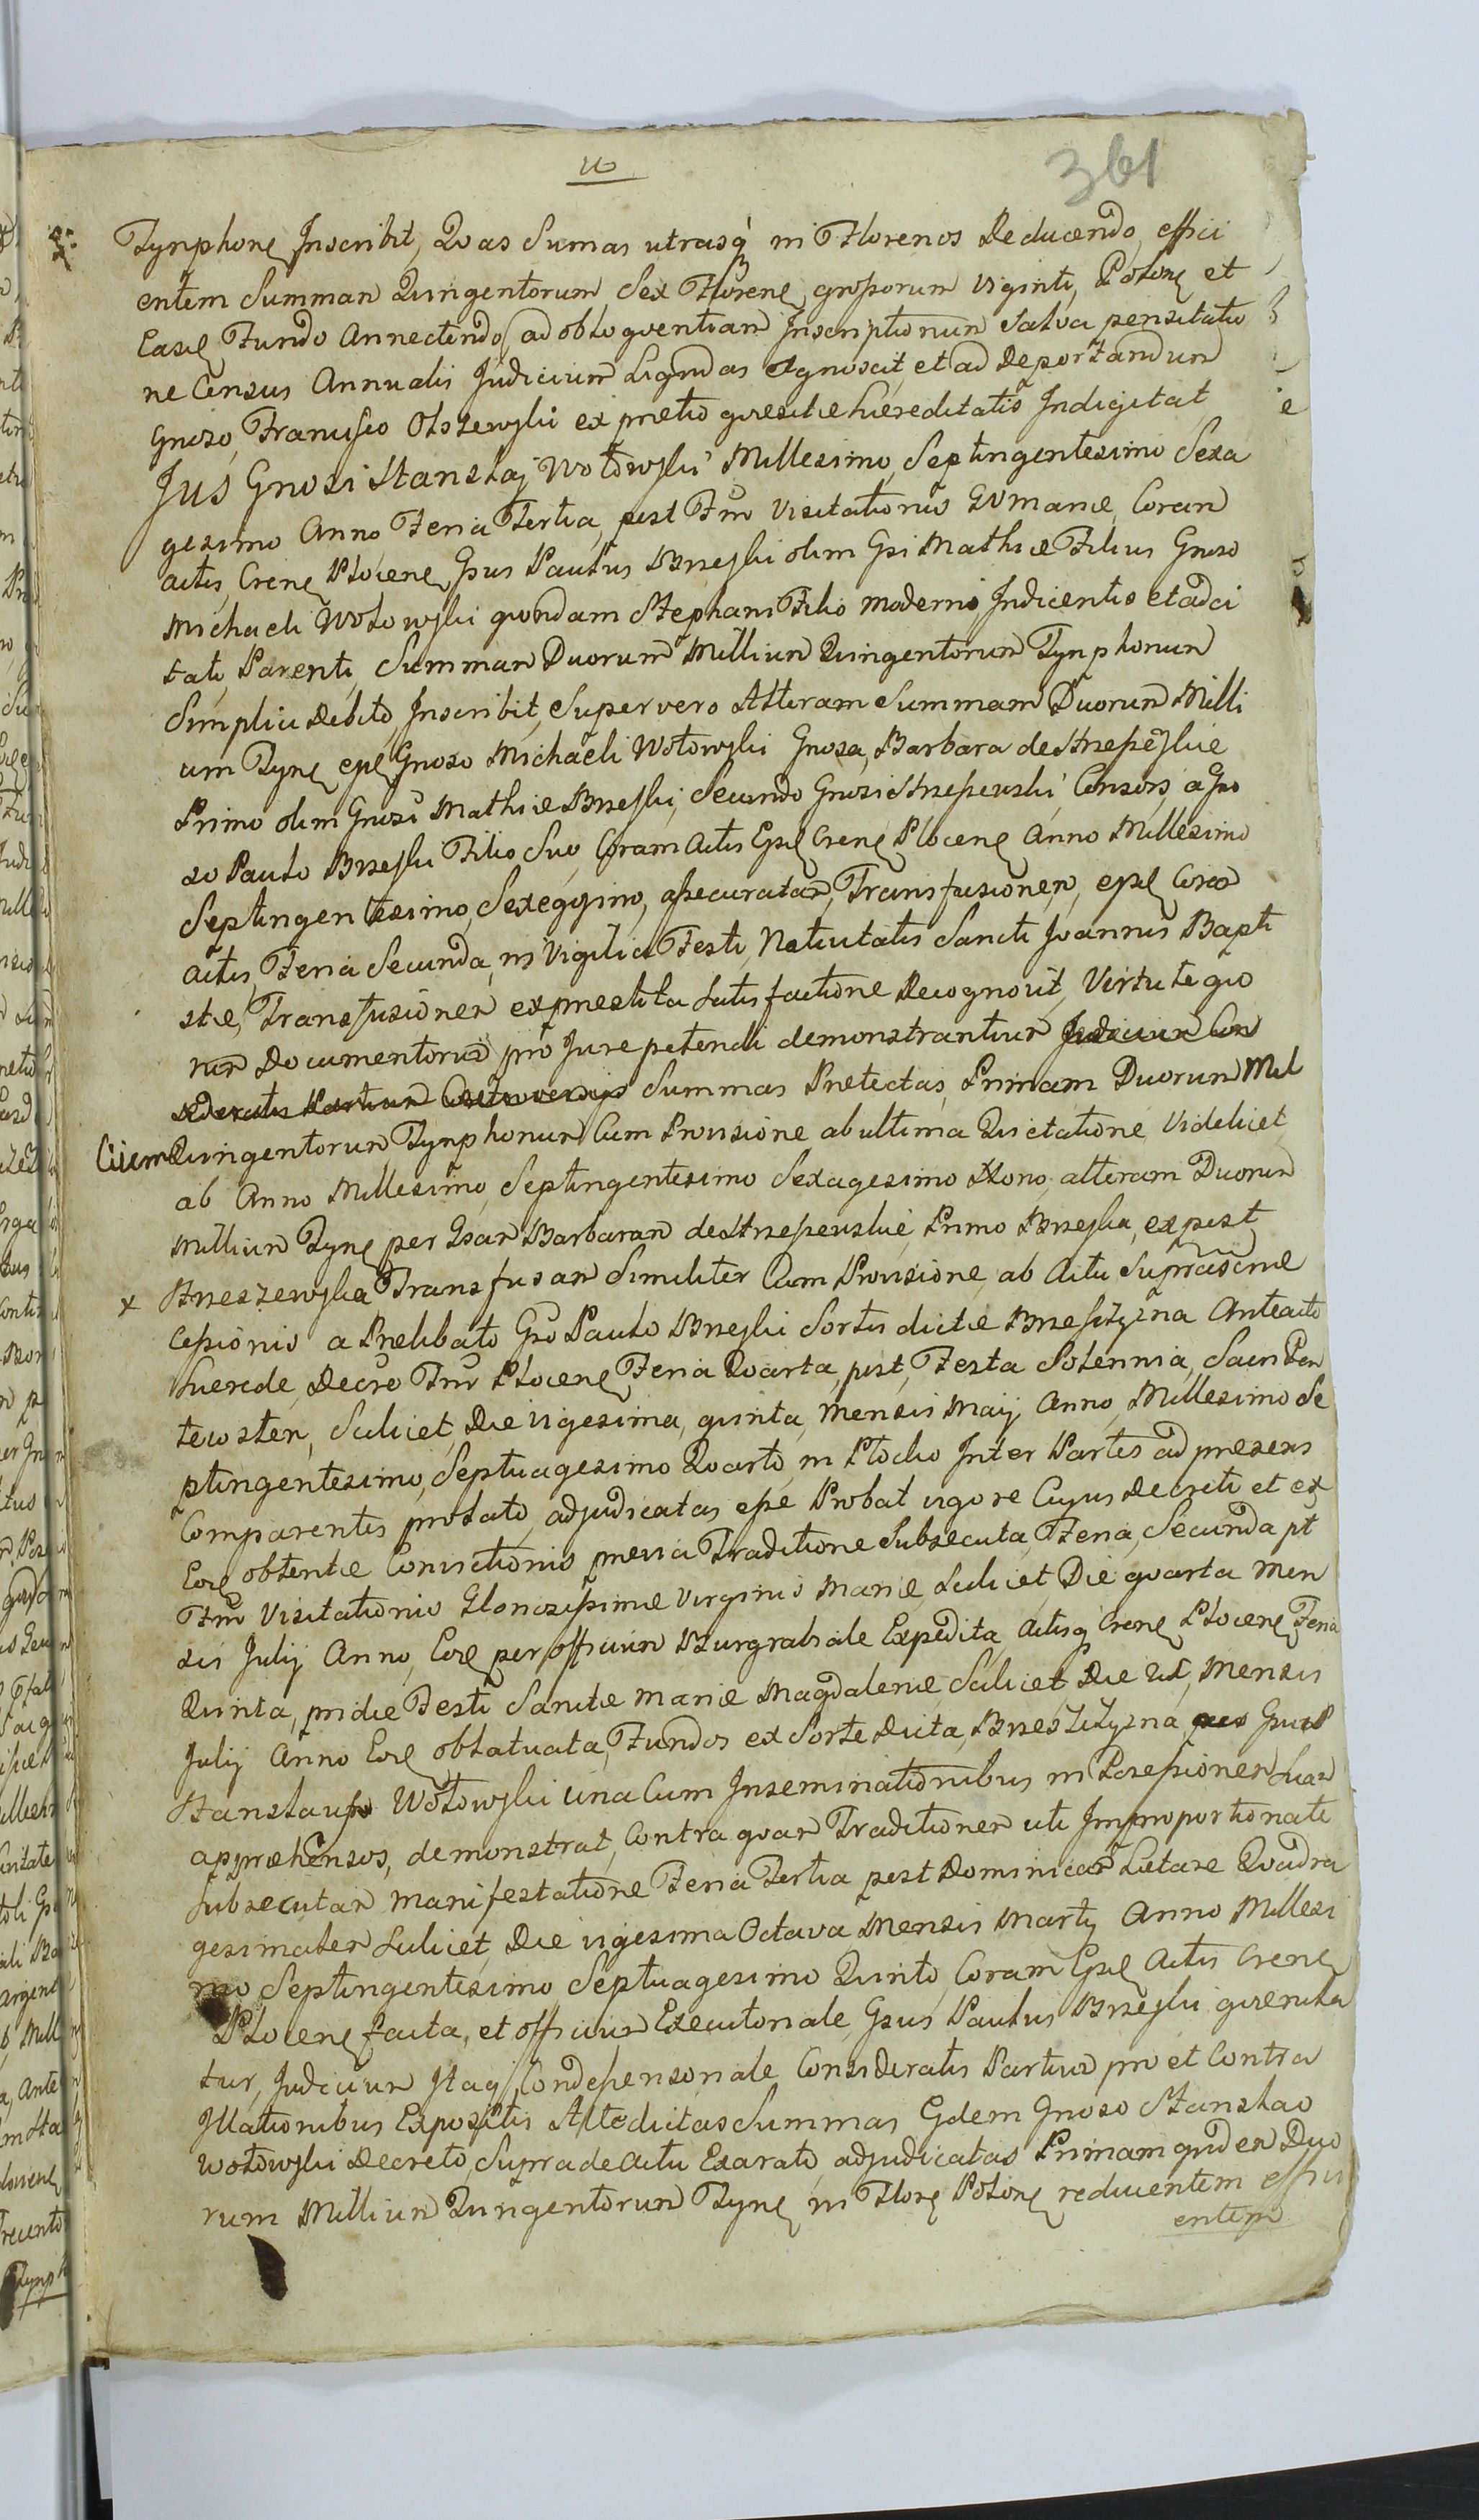 361
Tynphone Inscribit, Quas Sumas utrasq in Florenos Reducendo, effici
entem Summam Quingentorum Sex Florene, grossorum viginti, Polone et
Ease Fundo Annectendo, ad obloquentiam Inscriptionum Salva pensitatio
ne Census Annualis Judicium Liqndas Agnoscit, et ad Deportandum
Gnoso Francisco Olszewski ex pretio quesitæ hæreditatis Indigitat
Jus Gnosi Stanslaj Wołowski Millesimo, Septingentesimo Sexa
gesimo Anno, Feria Tertia, post Fm Visitationis Mariæ, Coram
actis, Crene Plocene, Gsus Paulus Brzeski olim Gsi Mathiæ Filius Gnoso
Michaeli Wołowski quondam Stephani Filio moderni Indicentis et adci
tati, Parenti, Summam Duorum Millium Quingentorum Tynphonum
Simplici Debito, Inscribit, Super vero Alteram Summam Duorum Milli
um Tyne epe Gnoso Michaeli Wołowski Gnosa, Barbara de Strzepeskie
Primo olim Gnosi Mathiæ Brzeski, Secundo Gnosi Strzepewski Consors, a Gno
so Paulo Brzeski Filio Suo, Coram Actis Epe Crene Plocene Anno Millesimo
Septingentesimo, Sexeggimo, assecuratam, Transfusionem, epe Coram
actis, Feria Secunda, in Vigilia Festi, Nativitatis Sancti Joannis Bapti
stæ, Transfusionem ex præstita satisfactione Recognovit, Virtute quo
rum Documentorum pro Jure petendi demonstrantiur Judicium Con
sideratis Partium Controversijs Summas Pretectas, Primam Duorum Mil
lium Quingentorum Tynphonum Cum Provisione ab ultima Quietatione Videlicet
ab Anno Millesimo, Septingentesimo Sexagesimo Nono, alteram Duorum
Millium Tyne per Gsam Barbaram de Strzepeuskie, Primo Brzeska, ex post
x Strzeszewska, Transfusam Similiter Cum Provisione, ab Actu Supra
Cessionis a Prelibato Gso Paulo Brzeski Sortis dictæ Brzeszczyzna Anteacto
Luerede, Decro Fm Plocene, Feria Quarta, post, Festa Solennia, Sacri Pen
tecosten, Scilicet, Die vigesima, quinta, Mensis Maij Anno, Millesimo Se
ptingentesimo, Septuagesimo Quarto, in Plocko Inter Partes ad presens
Comparentes prolato, adjudicatas esse Probat vigore Cujus Decreti et ex
Eoe obtentæ Convictionis previa Traditione Subsecuta, Feria, Secunda pt
Fm Visitationis Gloriosissimæ Virginis Mariæ Scilicet Die quarta Men
sis Julij Anno, Eoe per officium Burgrabiale Expedita Actisq Crene Plocene Feria
Quinta, pridie Festi Sanctæ Mariæ Magdalenæ, Scilicet, Die Mensis
Julij Anno Eoe oblatuata, Fundos ex Sorte Dicta, Brzeszczyzna Gsus
Stanslaus Wołowski una Cum Inseminationibus in Possessionem Suam
apprehensos, demonstrat, Contra quam Traditionem uti Improportionate
Subsecutam Manifestatione Feria Tertia post Dominicam Lætare Quadra
gesimalem Scilicet, Die vigesima Octava Mensis Martij Anno Millesi
mo Septingentesimo Septuagesimo Quinto, Coram Epe Actis Crene
Plocene facta, et officium Executoriale, Gsus Paulus Brzeski querula
tur, Judicium Itaq, Condescensoriale Consideratis Partium pro et Contra
Illationibus Expositis Altedictas Summas Eidem Gnoso Stanslao
Wołowski Decreto, Supra de Actu Exarato, adjudicatas Primam quidem Duo
rum Millium Quingentorum Tyne in Flore Polone reducentem effici
entem